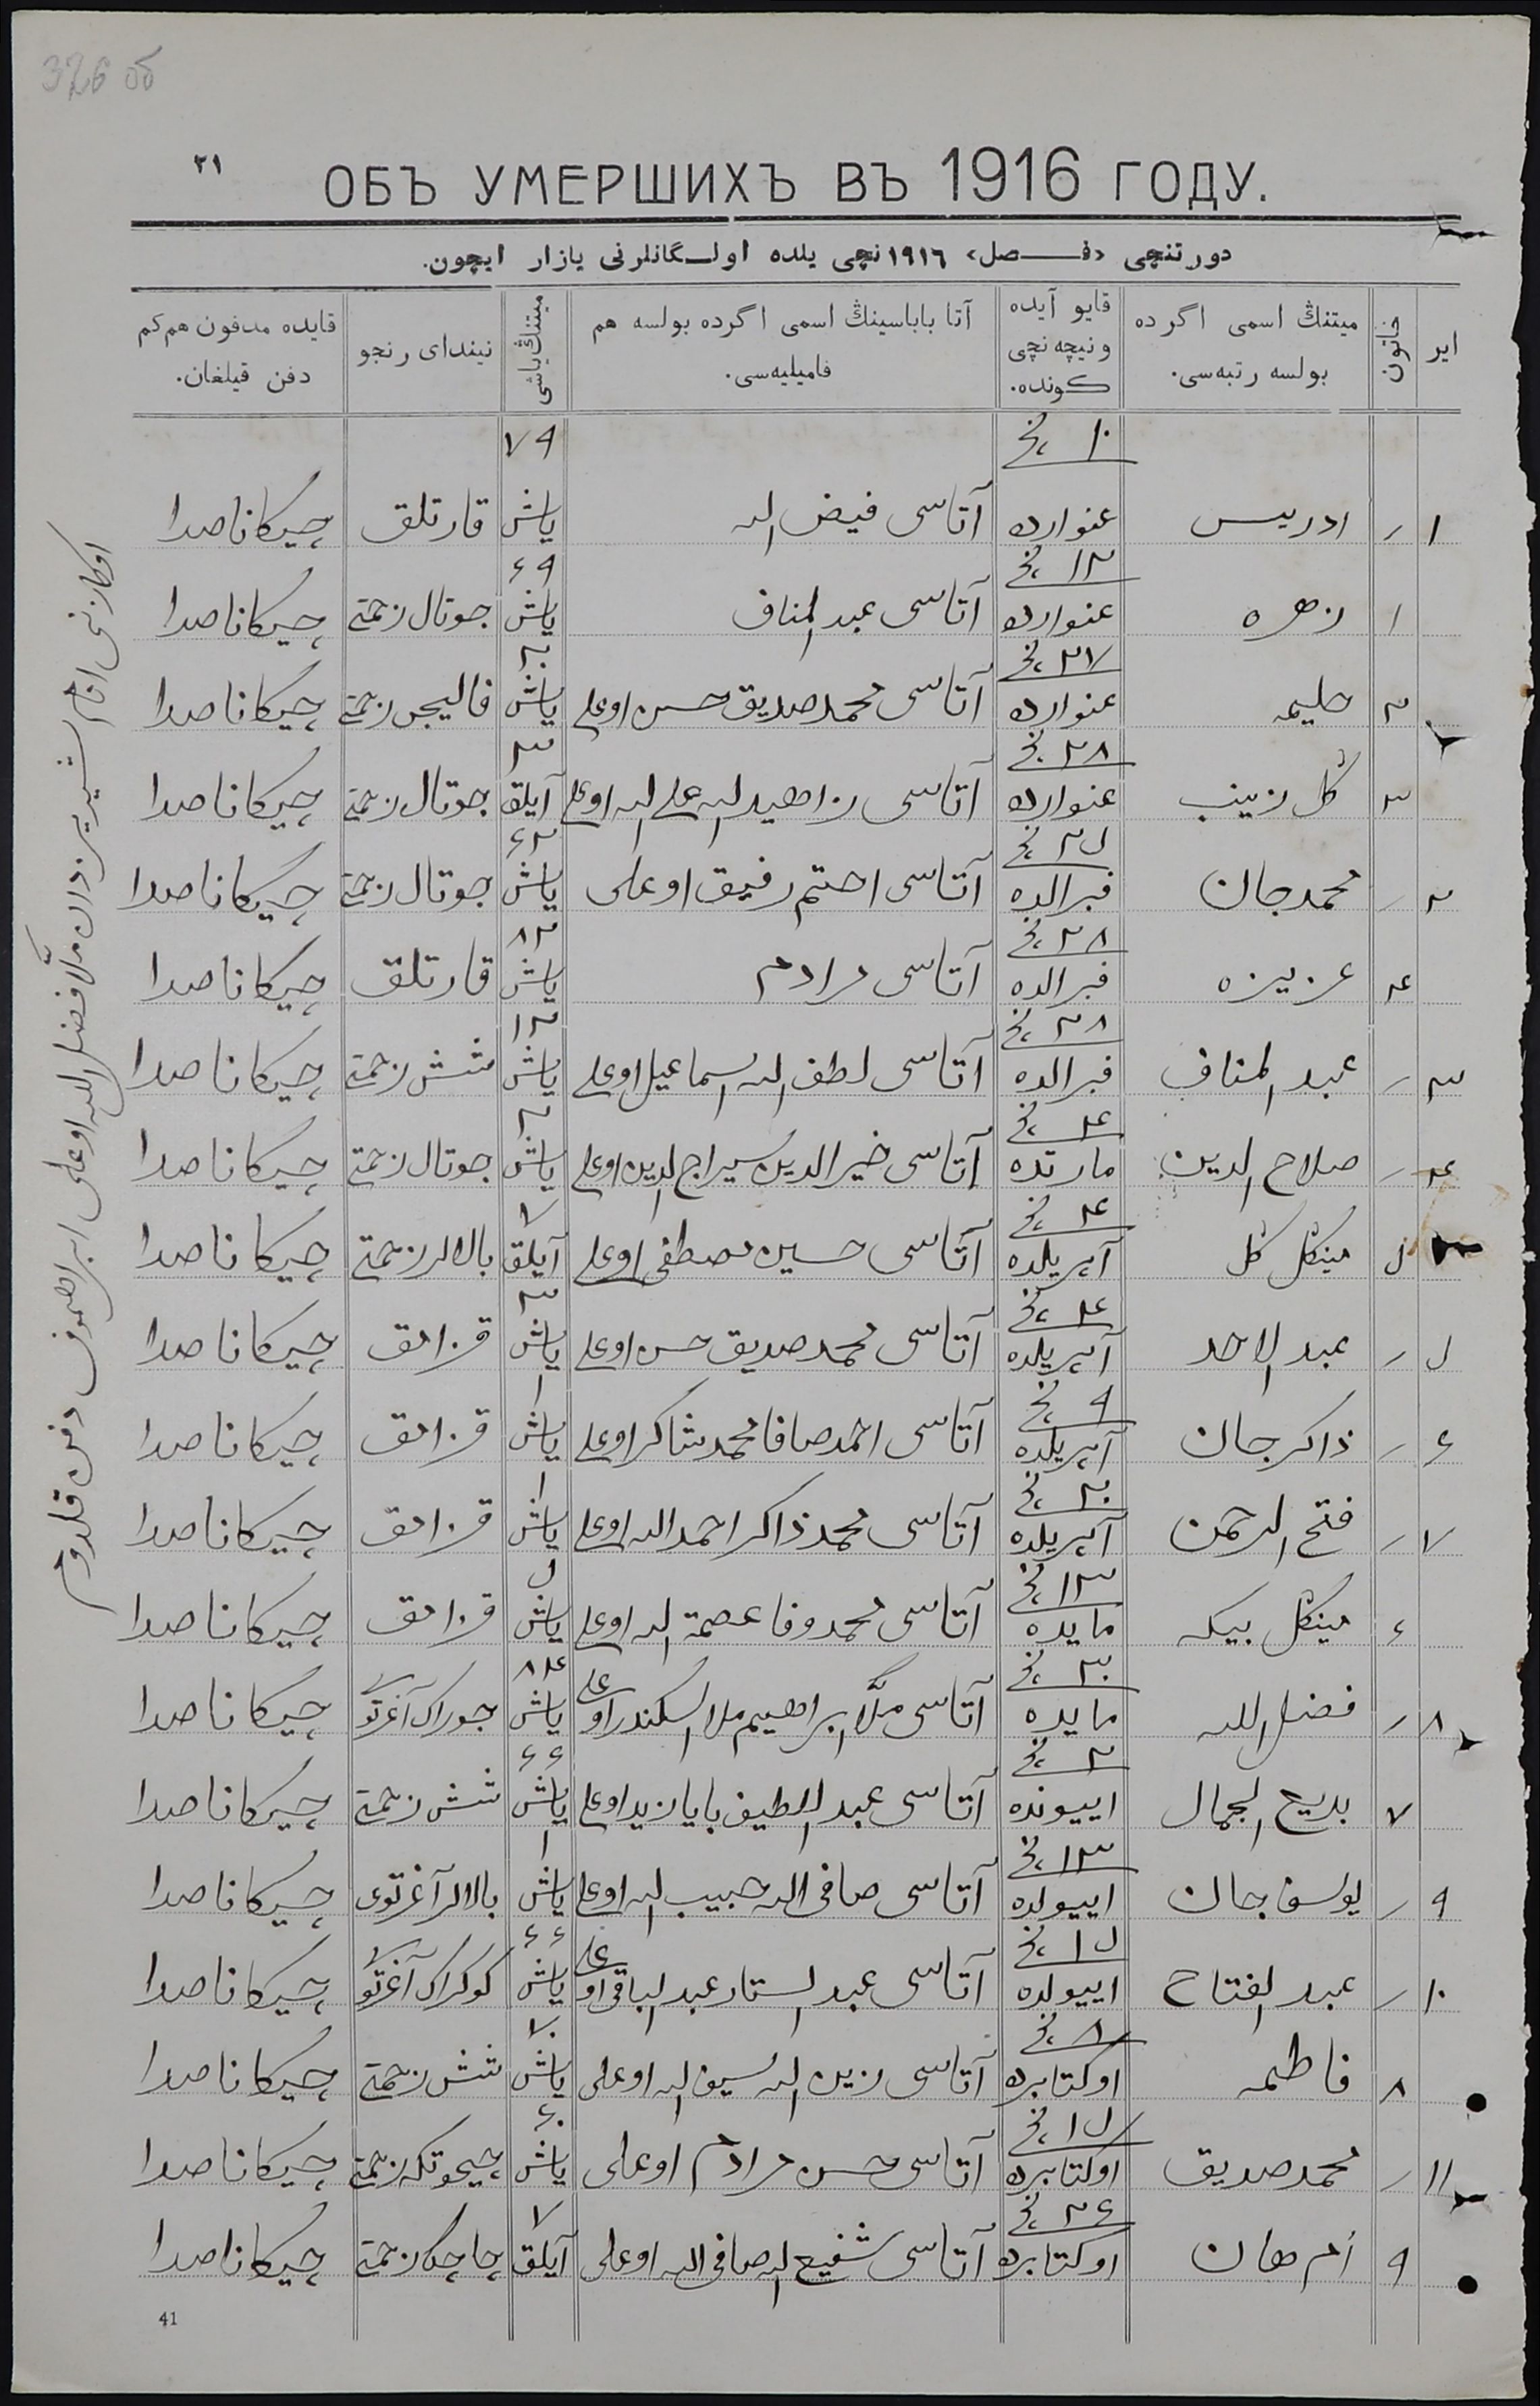 326 об
٣١
ОБЪ УМЕРШИХЪ ВЪ 1916 ГОДУ.
دورتنچی «فـصل» ١٩١٦ نچی یلده اولـگانلرنی یازار ایچون.
ایر
خاتون
میتنڭ اسمی اگرده بولسه رتبه‌سی.
قایو آیده و نیچه نچی كونده.
آتا باباسینڭ اسمی اگرده بولسه هم فامیلیه‌سی.
میتنڭ یاشی
نیندای رنجو
قایده مدفون هم كم دفن قیلغان.
١ ادریس ١٠ نچی عنوارده آتاسی فیض الله ٧٩ یاش قارتلق چیكاناصدا
١ زهره ١٢ نچی عنوارده آتاسی عبد المناف ٦٩ یاش جوتال زحمتی چیكاناصدا
٢ حلیمه ٢٧ نچی عنوارده آتاسی محمد صدیق حسن اوغلی ٢٠ یاش فالیجن زحمتی چیكاناصدا
٣ گل زینب ٢٨ نچی عنوارده آتاسی زاهید الله علی الله اوغلی ٣ آیلق جوتال زحمتی چیكاناصدا
٢ محمدجان ٢٥ نچی فبرالده آتاسی احتم رفیق اوغلی ٦٢ یاش جوتال زحمتی چیكاناصدا
٤ عزیزه ٢٨ نچی فبرالده آتاسی مرادم ٨٢ یاش قارتلق چیكاناصدا
٣ عبد المناف ٢٨ نچی فبرالده آتاسی لطف الله اسماعیل اوغلی ١٢ یاش شش زحمتی چیكاناصدا
٤ صلاح الدین ٤ نچی مارتده آتاسی خیر الدین سیراج الدین اوغلی ٢ یاش جوتال زحمتی چیكاناصدا
٥ مینگل گل ٤ نچی آپریلده آتاسی حسین مصطفی اوغلی ٧ آیلق بالالر زحمتی چیكاناصدا
٥ عبد الاحد ٤ نچی آپریلده آتاسی محمد صدیق حسن اوغلی ٣ یاش قزامق چیكاناصدا
٦ ذاكرجان ٩ نچی آپریلده آتاسی احمدصافا محمدشاكر اوغلی ١ یاش قزامق چیكاناصدا
٧ فتح الرحمن ٢٠ نچی آپریلده آتاسی محمدذاكر احمد الله اوغلی ١ یاش قزامق چیكاناصدا
٦ مینگل بیكه ١٣ نچی مایده آتاسی محمدوفا عصمة الله اوغلی ٥ یاش قزامق چیكاناصدا
٨ فضل الله ٢٠ نچی مایده آتاسی ملا ابراهیم ملا اسكندر اوغلی ٨٤ یاش جوراك آغرتو چیكاناصدا
٧ بدیع الجمال ٢ نچی اییونده آتاسی عبد اللطیف بایازید اوغلی ٦٦ یاش شش زحمتی چیكاناصدا
٩ یوسف جان ١٣ نچی اییولده آتاسی صافی الله حبیب الله اوغلی ١ یاش بالالر آغرتوی چیكاناصدا
١٠ عبد الفتاح ١٥ نچی اییولده آتاسی عبد الستار عبد الباقی اوغلی ٦٦ یاش كوكراك آغرتو چیكاناصدا
٨ فاطمه ٨ نچی اوكتابرده آتاسی زین الله سیف الله اوغلی ٧٠ یاش شش زحمتی چیكاناصدا
١١ محمد صدیق ١٥ نچی اوكتابرده آتاسی حسن مرادم اوغلی ٦٠ یاش چیحوتكه زحمتی چیكاناصدا
٩ ام هان ٢٦ نچی اوكتابرده آتاسی شفیع الله صافی الله اوغلی ٧ آیلق چاچكا زحمتی چیكاناصدا
اوكازنی امام ملا فضل الله اوغلی ابراهیموف دفن قلدوم
41